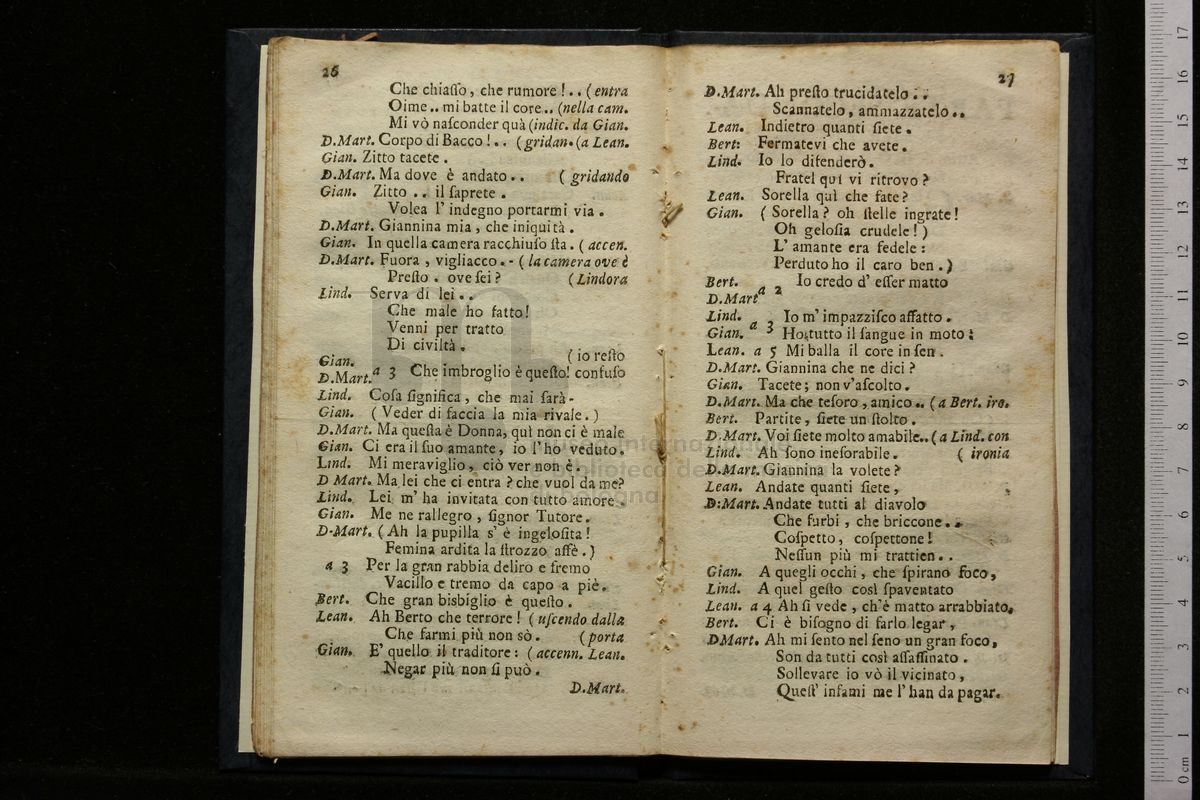 26
Che chiaſſo, che rumore!.. (entra
Oime.. mi batte il core.. (nella cam.
Mi vò naſconder quà (indic. da Gian.
D.Mart. Corpo di Bacco!.. (gridan. (a Lean.
Gian. Zitto tacete.
D.Mart. Ma dove è andato.. (gridando
Gian. Zitto.. il ſaprete.
Volea l' indegno portarmi via.
D.Mart. Giannina mia, che iniquità.
Gian. In quella camera racchiuſo ſta. (accen.
D.Mart. Fuora, vigliacco.- (la camera ove è
Preſto. ove ſei? (Lindora
Lind. Serva di lei..
Che male ho fatto!
Venni per tratto
Di civiltà.
(io reſto
Gian.
D.Mart. a 3 Che imbroglio è queſto! confuſo
Lind. Coſa ſignifica, che mai ſarà-
Gian. (Veder di faccia la mia rivale.)
D.Mart. Ma queſta è Donna, quì non ci è male
Gian. Ci era il ſuo amante, io l' ho veduto.
Lind. Mi meraviglio, ciò ver non è.
D Mart. Ma lei che ci entra? che vuol da me?
Lind. Lei m' ha invitata con tutto amore.
Gian. Me ne rallegro, ſignor Tutore.
D-Mart. (Ah la pupilla s' è ingeloſita!
Femina ardita la ſtrozzo affè.)
a 3 Per la gran rabbia deliro e fremo
Vacillo e tremo da capo a piè.
Bert. Che gran bisbiglio è queſto.
Lean. Ah Berto che terrore! (uſcendo dalla
Che farmi più non sò. (porta
Gian. E' quello il traditore: (accenn. Lean.
Negar più non ſi può.
D.Mart.
27
D.Mart. Ah preſto trucidatelo..
Scannatelo, ammazzatelo..
Lean. Indietro quanti ſiete.
Bert: Fermatevi che avete.
Lind. Io lo difenderò.
Fratel quì vi ritrovo?
Lean. Sorella quì che fate?
Gian. (Sorella? oh ſtelle ingrate!
Oh geloſia crudele!)
L' amante era fedele:
Perduto ho il caro ben.)
Bert.
D.Mart a 2 Io credo d' eſſer matto
Lind. Io m' impazziſco affatto.
Gian. a 3 Ho tutto il ſangue in moto:
Lean. a 5 Mi balla il core in ſen.
D.Mart. Giannina che ne dici?
Gian. Tacete; non v'aſcolto.
D.Mart. Ma che teſoro, amico.. (a Bert. iro.
Bert. Partite, ſiete un ſtolto.
D.Mart. Voi ſiete molto amabile.. (a Lind. con
Lind. Ah ſono ineſorabile. (ironia
D.Mart. Giannina la volete?
Lean. Andate quanti ſiete,
D:Mart. Andate tutti al diavolo
Che furbi, che briccone..
Coſpetto, coſpettone!
Neſſun più mi trattien..
Gian. A quegli occhi, che ſpirano foco,
Lind. A quel geſto così ſpaventato
Lean. a 4 Ah ſi vede, ch'è matto arrabbiato,
Bert. Ci è biſogno di farlo legar,
DMart. Ah mi ſento nel ſeno un gran foco,
Son da tutti così aſſaſſinato.
Sollevare io vò il vicinato,
Queſt' infami me l' han da pagar.